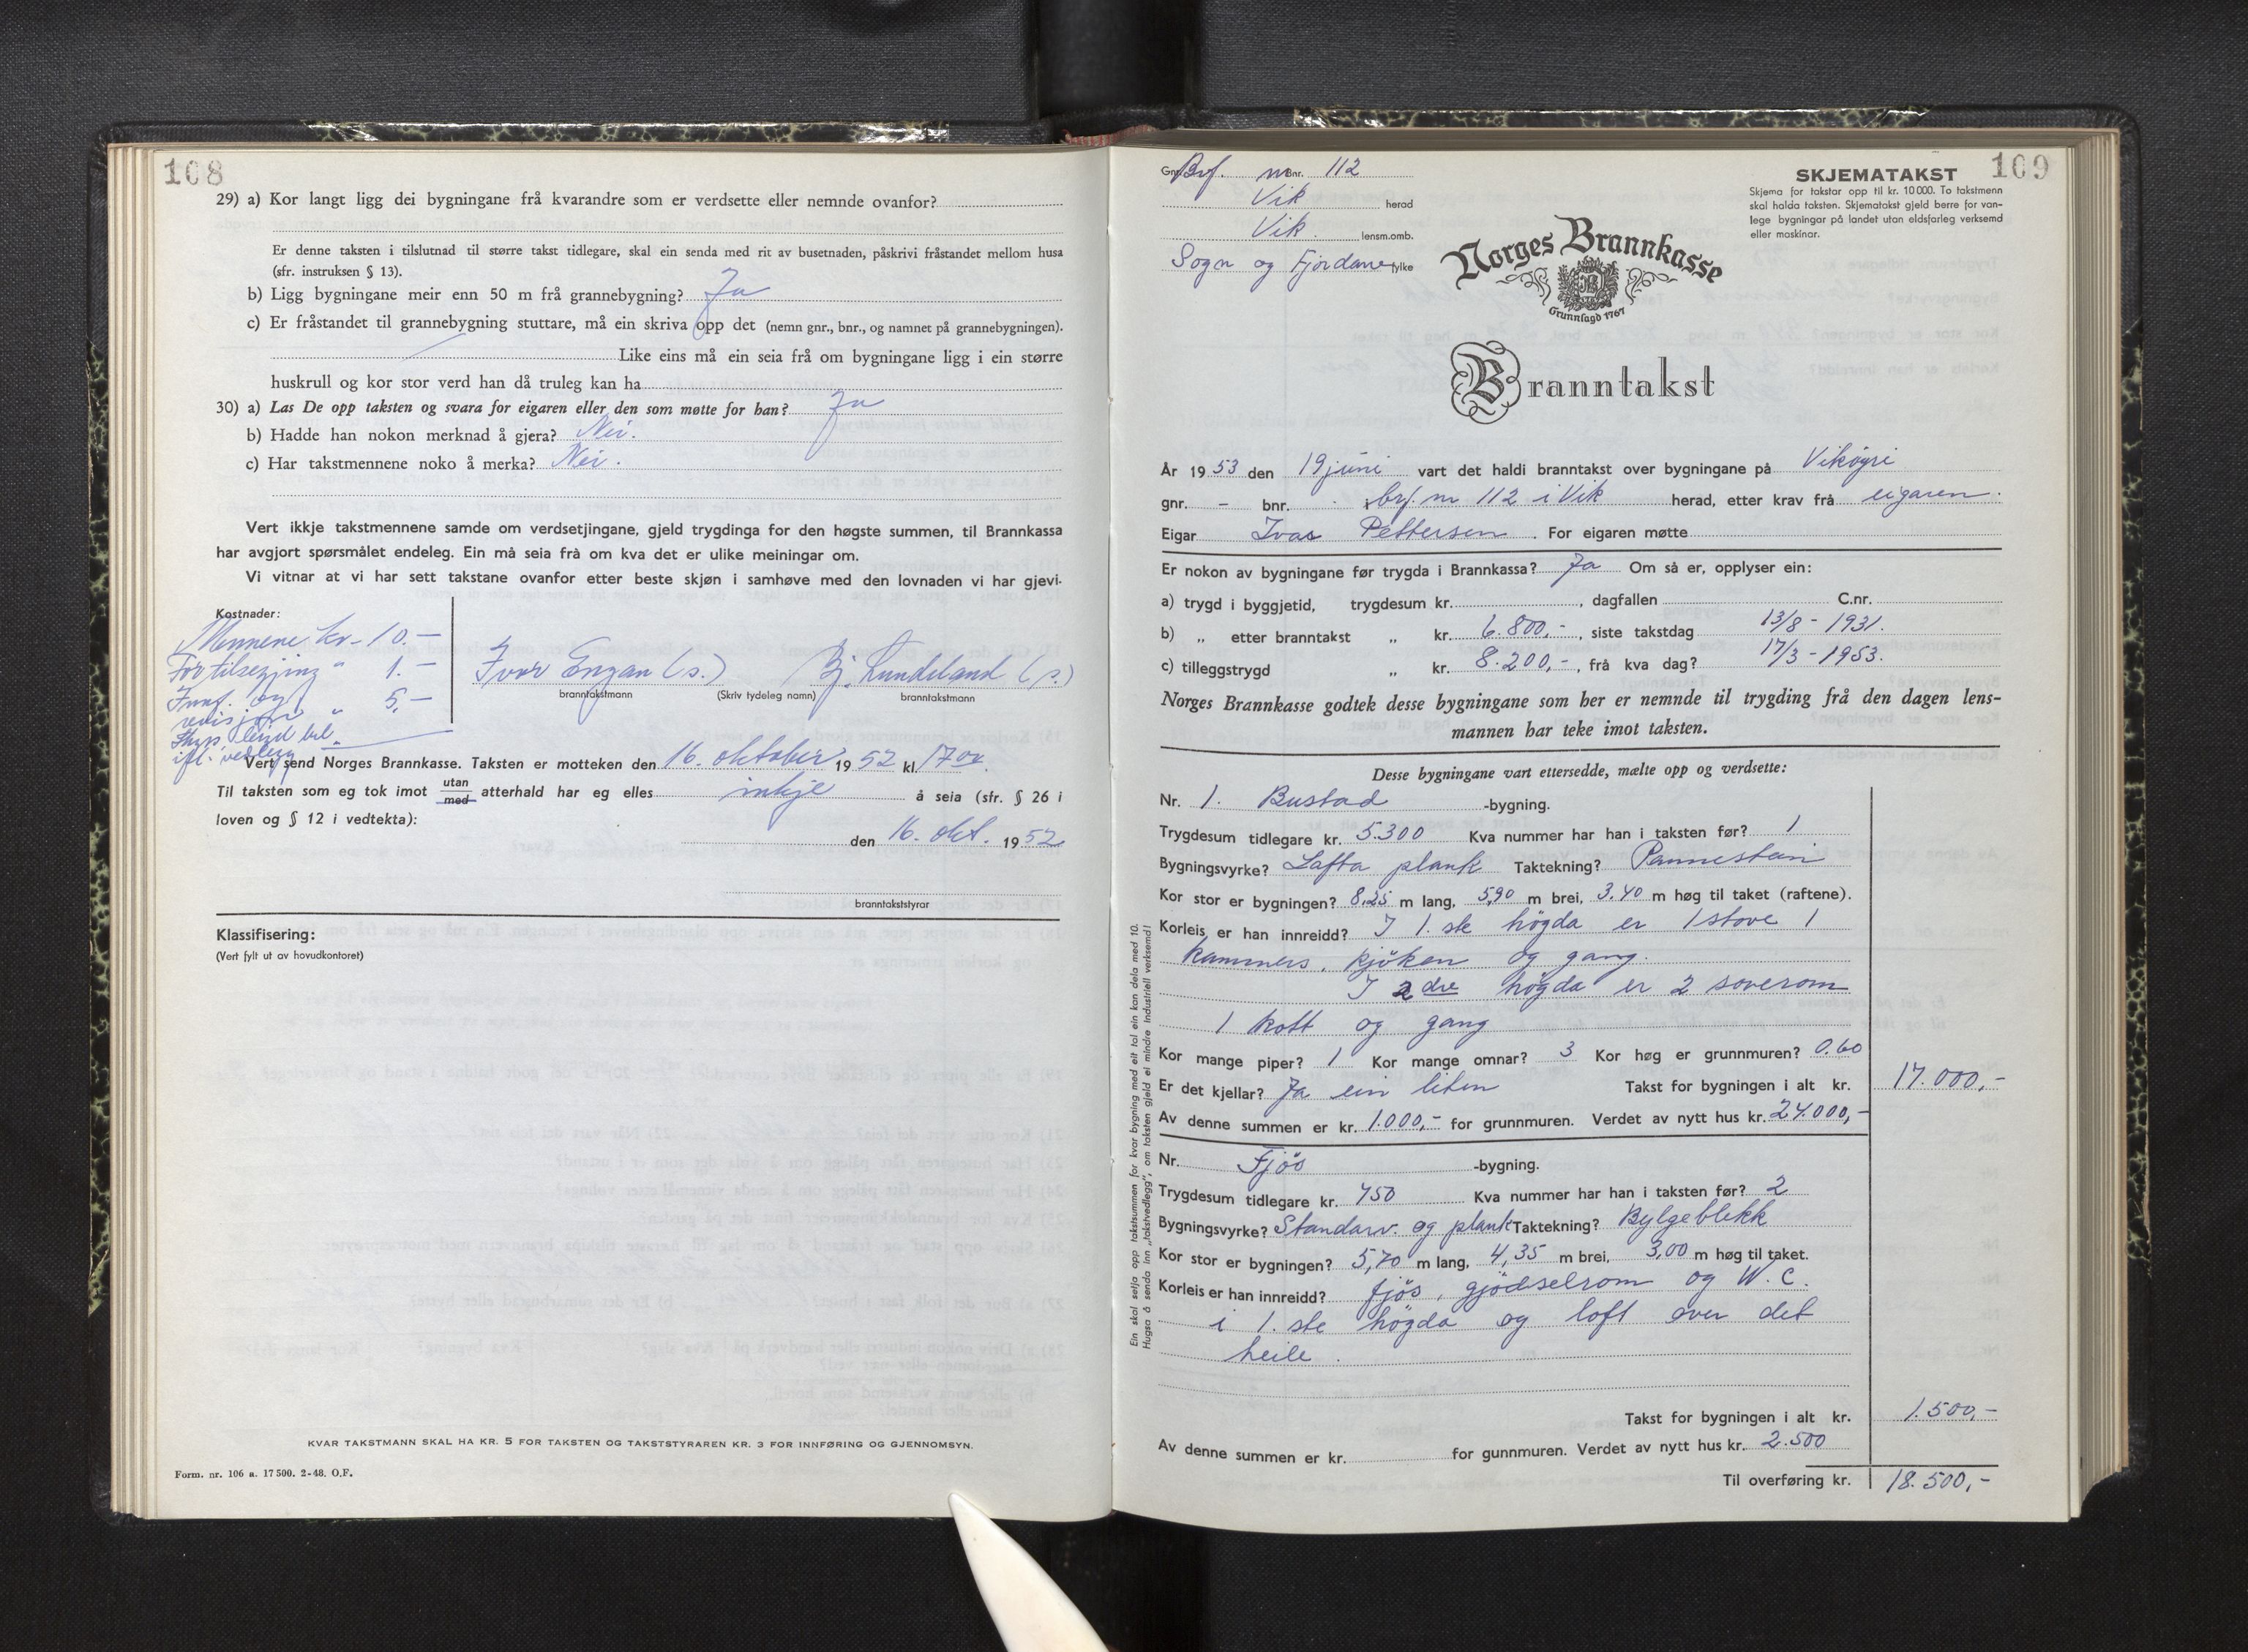 108
29) a) Kor langt ligg dei bygningane frå kvarandre som er verdsette eller nemnde ovanfor?
Er denne taksten i tilslutnad til større takst tidlegare, skal ein senda med rit av busetnaden, påskrivi fråstandet mellom husa
(sfr. instruksen § 13).
b) Ligg bygningane meir enn 50 m frå grannebygning? Ja
c) Er fråstandet til grannebygning stuttare, må ein skriva opp det (nemn gnr., bnr., og namnet på grannebygningen).
Like eins må ein seia frå om bygningane ligg i ein større
huskrull og kor stor verd han då truleg kan ha
30) a) Las De opp taksten og svara for eigaren eller den som møtte for han? Ja
b) Hadde han nokon merknad å gjera? Nei.
c) Har takstmennene noko å merka? Nei.
Vert ikkje takstmennene samde om verdsetjingane, gjeld trygdinga for den høgste summen, til Brannkassa
har avgjort spørsmålet endeleg. Ein må seia frå om kva det er ulike meiningar om.
Vi vitnar at vi har sett takstane ovanfor etter beste skjøn i samhøve med den lovnaden vi har gjevi.
Kostnader:
Mennene kr. 10.—
For tilsegjing " 1.—
Innf. og
revisjon " 5,—
Skyss
ifl. vedlegg
Ivar Engan (s.) Bj. Lundeland (s.)
branntakstmann (Skriv tydeleg namn) branntakstmann
Vert send Norges Brannkasse. Taksten er motteken den 16. oktober 1952 kl 17 00.
Til taksten som eg tok imot utan/med atterhald har eg elles inkje å seia (sfr. § 26 i
loven og § 12 i vedtekta):
den 16. okt. 1952
branntakststyrar
Klassifisering:
(Vert fylt ut av hovudkontoret)
KVAR TAKSTMANN SKAL HA KR. 5 FOR TAKSTEN OG TAKSTSTYRAREN KR. 3 FOR INNFØRING OG GJENNOMSYN.
Form. nr. 106 a. 17 500. 2-48. O.F.
109
Gnr. Brf. nr Bnr. 112
Vik herad
Vik lensm.omb.
Sogn og Fjordane fylke
SKJEMATAKST
Skjema for takstar opp til kr. 10 000. To takstmenn
skal halda taksten. Skjematakst gjeld berre for van-
lege bygningar på landet utan eldsfarleg verksemd
eller maskinar.
Norges Brannkasse
Grunnlagd 1767
Branntakst
År 1953 den 19 juni vart det haldi branntakst over bygningane på Vikøyri
gnr. – bnr. · i brf. nr 112 i Vik herad, etter krav frå eigaren.
Eigar Ivar Pettersen. For eigaren møtte
Er nokon av bygningane før trygda i Brannkassa? Ja Om så er, opplyser ein:
a) trygd i byggjetid, trygdesum kr. , dagfallen C.nr.
b) „ etter branntakst „ kr. 6.800,- , siste takstdag 13/8 - 1931.
c) tilleggstrygd „ kr. 8.200,- , frå kva dag? 17/3 - 1953.
Norges Brannkasse godtek desse bygningane som her er nemnde til trygding frå den dagen lens-
mannen har teke imot taksten.
Desse bygningane vart ettersedde, mælte opp og verdsette:
Nr. 1. Bustad -bygning.
Trygdesum tidlegare kr. 5.300 Kva nummer har han i taksten før? 1
Bygningsvyrke? Lafta plank Taktekning? Pannestein
Kor stor er bygningen? 8,25 m lang, 5,90 m brei, 3.40 m høg til taket (raftene).
Korleis er han innreidd? I 1. ste högda er 1 stove 1
kammers, kjöken og gang.
I 2 dre högda er 2 soverom
1 kott og gang
Kor mange piper? 1 Kor mange omnar? 3 Kor høg er grunnmuren? 0.60
Er det kjellar? Ja ein liten Takst for bygningen i alt kr. 17.000,-
Av denne summen er kr. 1.000,- for grunnmuren. Verdet av nytt hus kr. 24.000,-
Nr. Fjös -bygning.
Trygdesum tidlegare kr. 750 Kva nummer har han i taksten før? 2
Bygningsvyrke? Standarv. og plank Taktekning? Bylgeblekk
Kor stor er bygningen? 5,70 m lang, 4,35 m brei, 3,00 m høg til taket.
Korleis er han innreidd? fjös, gjödselrom og W.C.
i 1. ste högda og loft over det
heile.
Takst for bygningen i alt kr. 1.500,-
Av denne summen er kr. for gunnmuren. Verdet av nytt hus kr. 2.500
Til overføring kr. 18.500,-
Ein skal setja opp takstsummen for kvar bygning med eit tal ein kan dela med 10.
Hugsa å senda inn „takstvedlegg", om taksten gjeld ei mindre industriell verksemd!